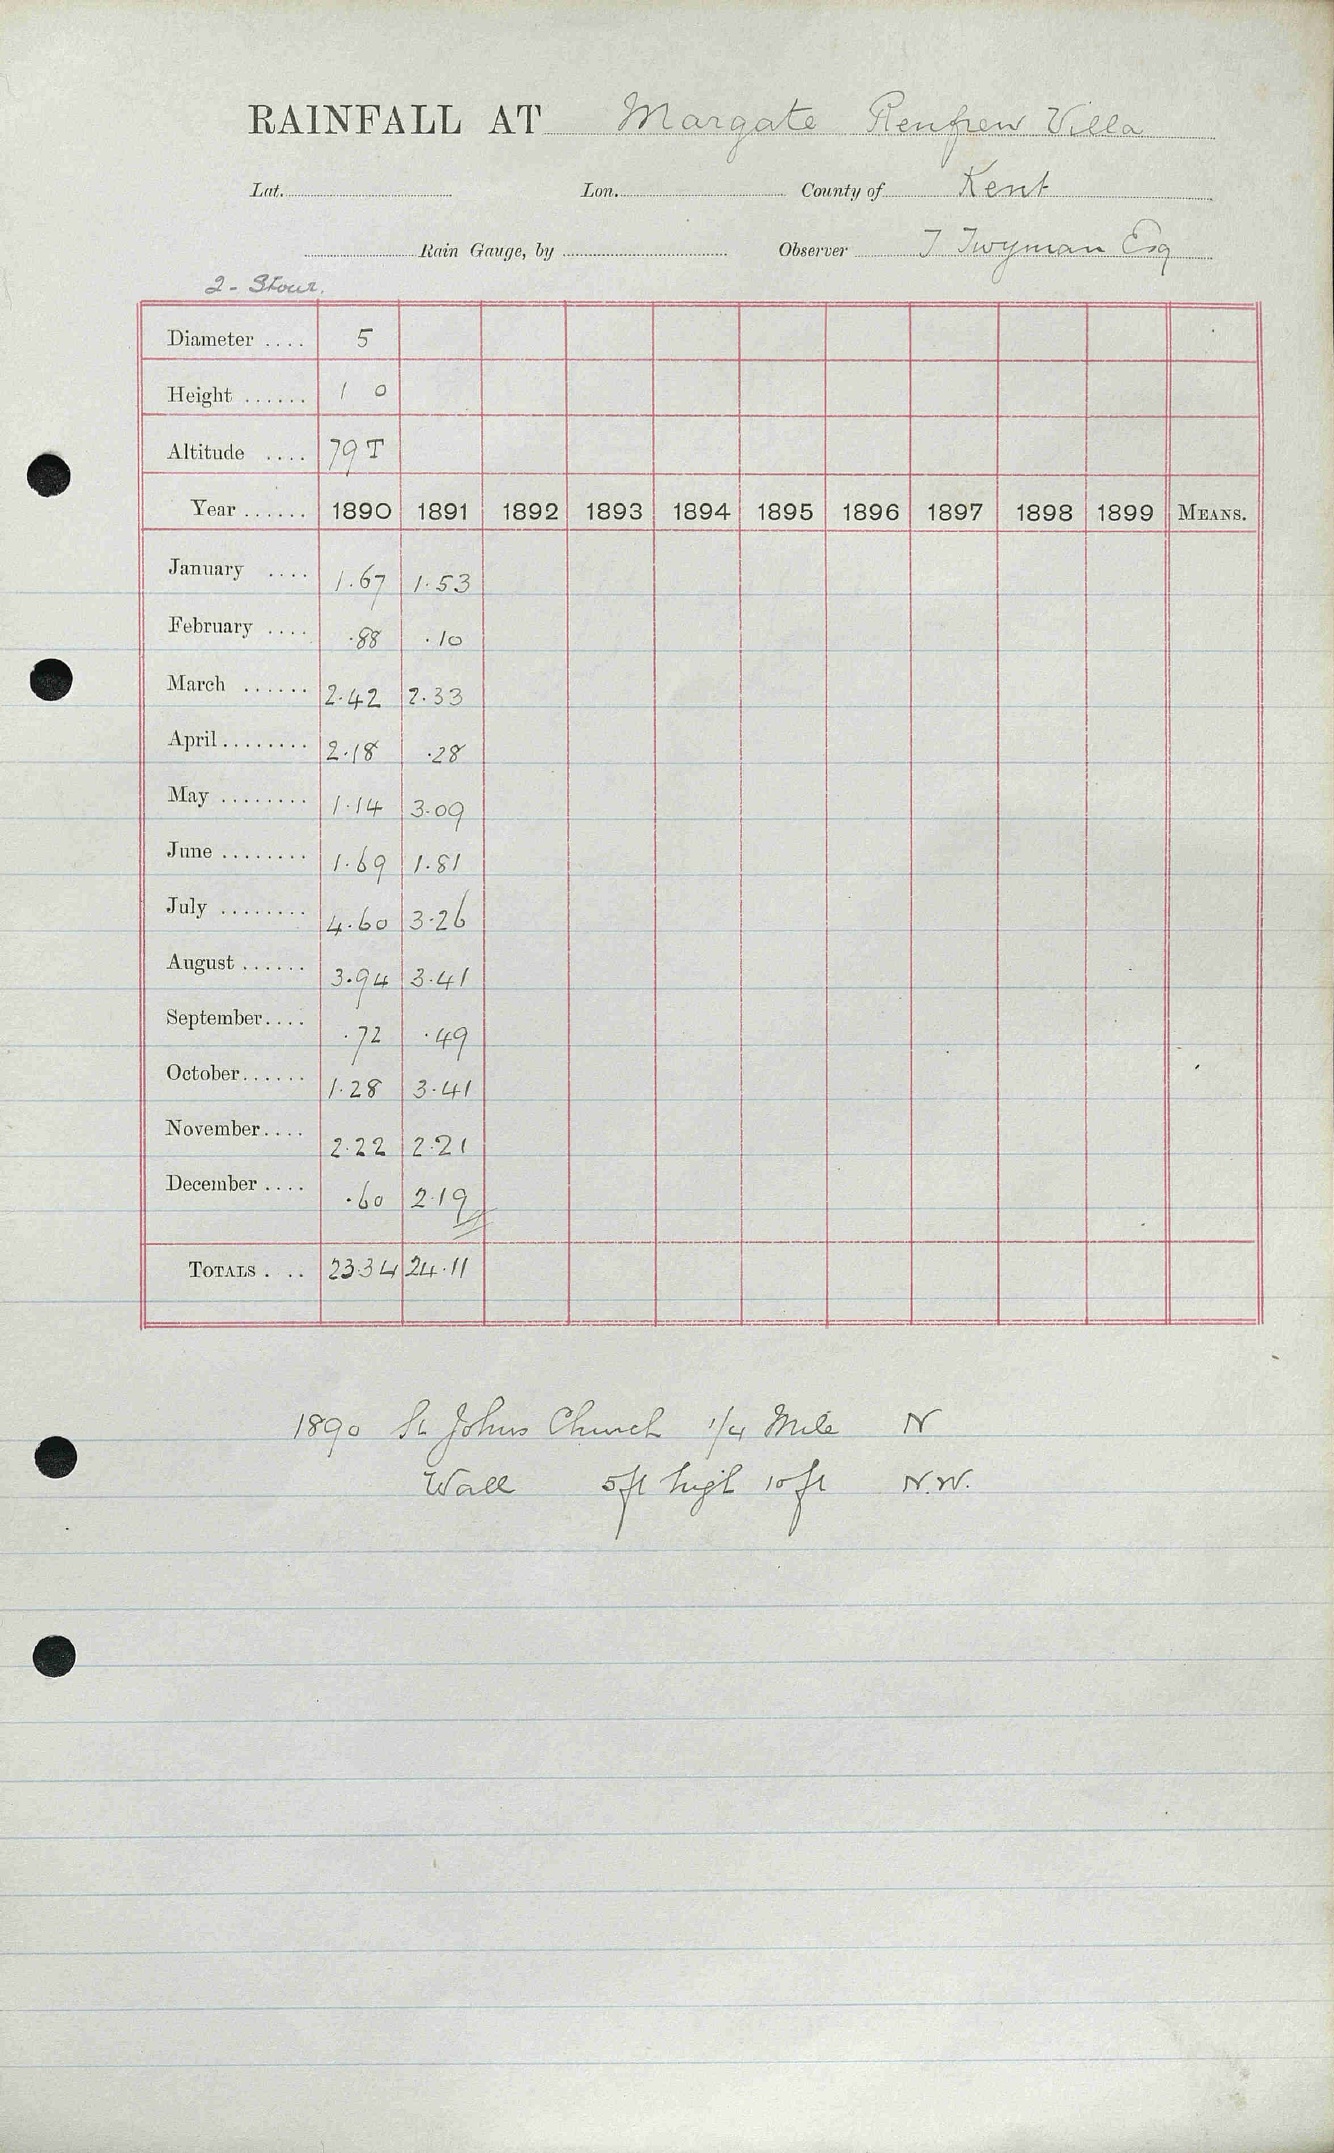 RAINFALL AT Margate Renfrew Villa
Lat. Lon. County of Kent
Rain Gauge, by Observer T Twyman Esq
2 - Stour.
Diameter .... 5
Height ...... 1 0
Altitude .... 79 T
Year ...... 1890 1891 1892 1893 1894 1895 1896 1897 1898 1899 MEANS.
January .... 1.67 1.53
February .... .88 .10
March ...... 2.42 2.33
April ........ 2.18 .28
May ........ 1.14 3.09
June ........ 1.69 1.81
July ........ 4.60 3.26
August ...... 3.94 3.41
September.... .72 .49
October...... 1.28 3.41
November.... 2.22 2.21
December .... .60 2.19
TOTALS . .. 23.34 24.11
1890 St Johns Church 1/4 Mile N
Wall 5ft high 10 ft N.W.